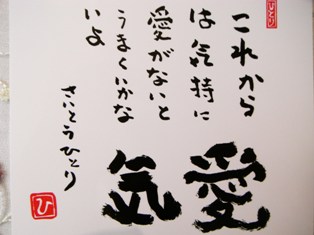 ひとり
これから
は気持に
愛がないと
うまくいかな
いよ
さいとうひとり
愛
気
ひ